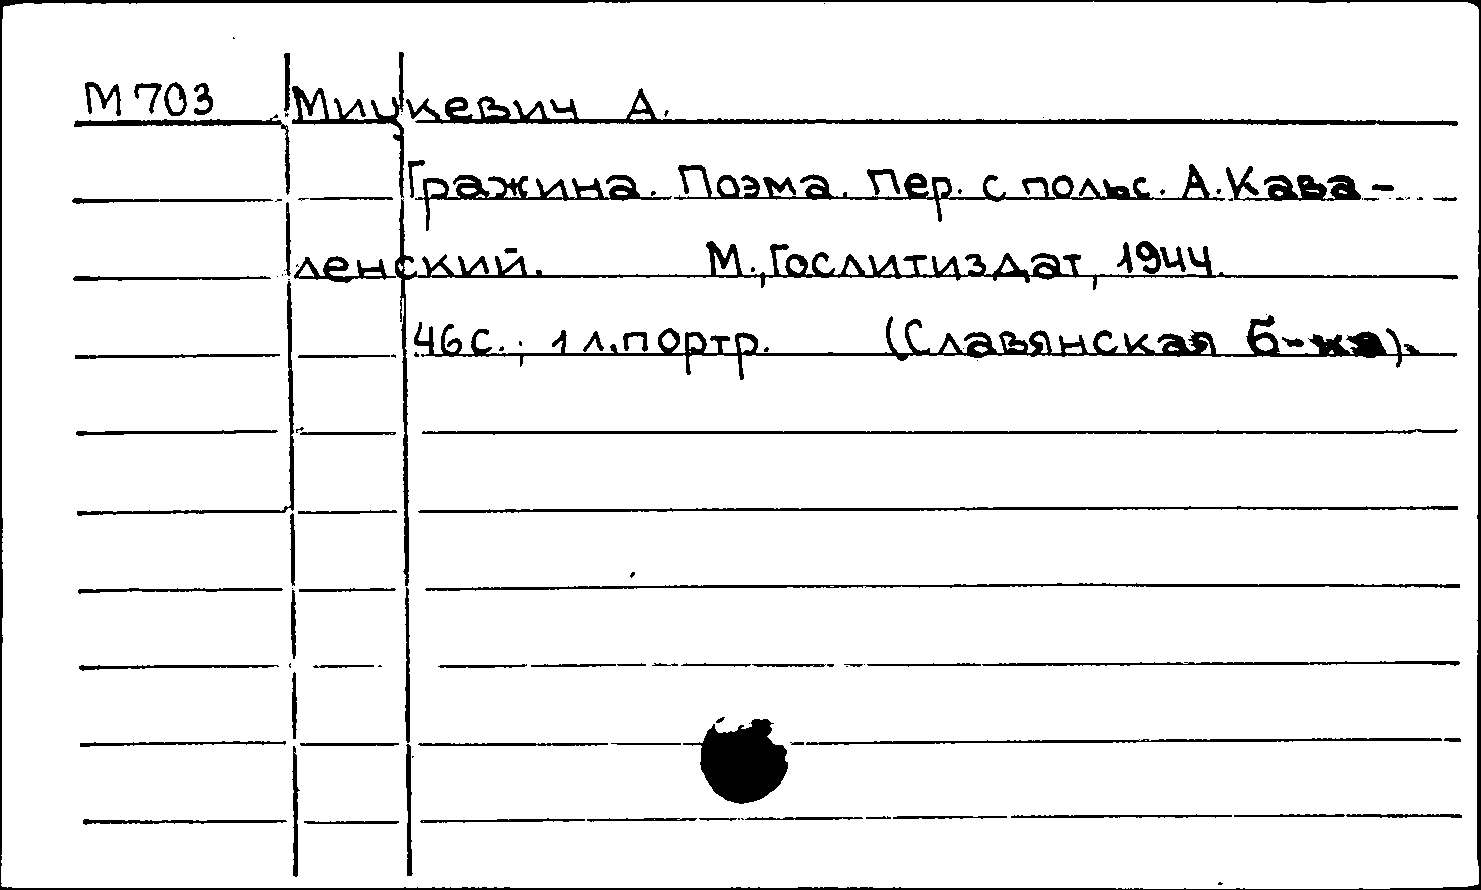 М703 Мицкевич А.
Гражина. Поэма. Пер. с польс. А. Кава-
ленский. М., Гослитиздат, 1944.
46с.; 1 л. портр. (Славянская б-ка).